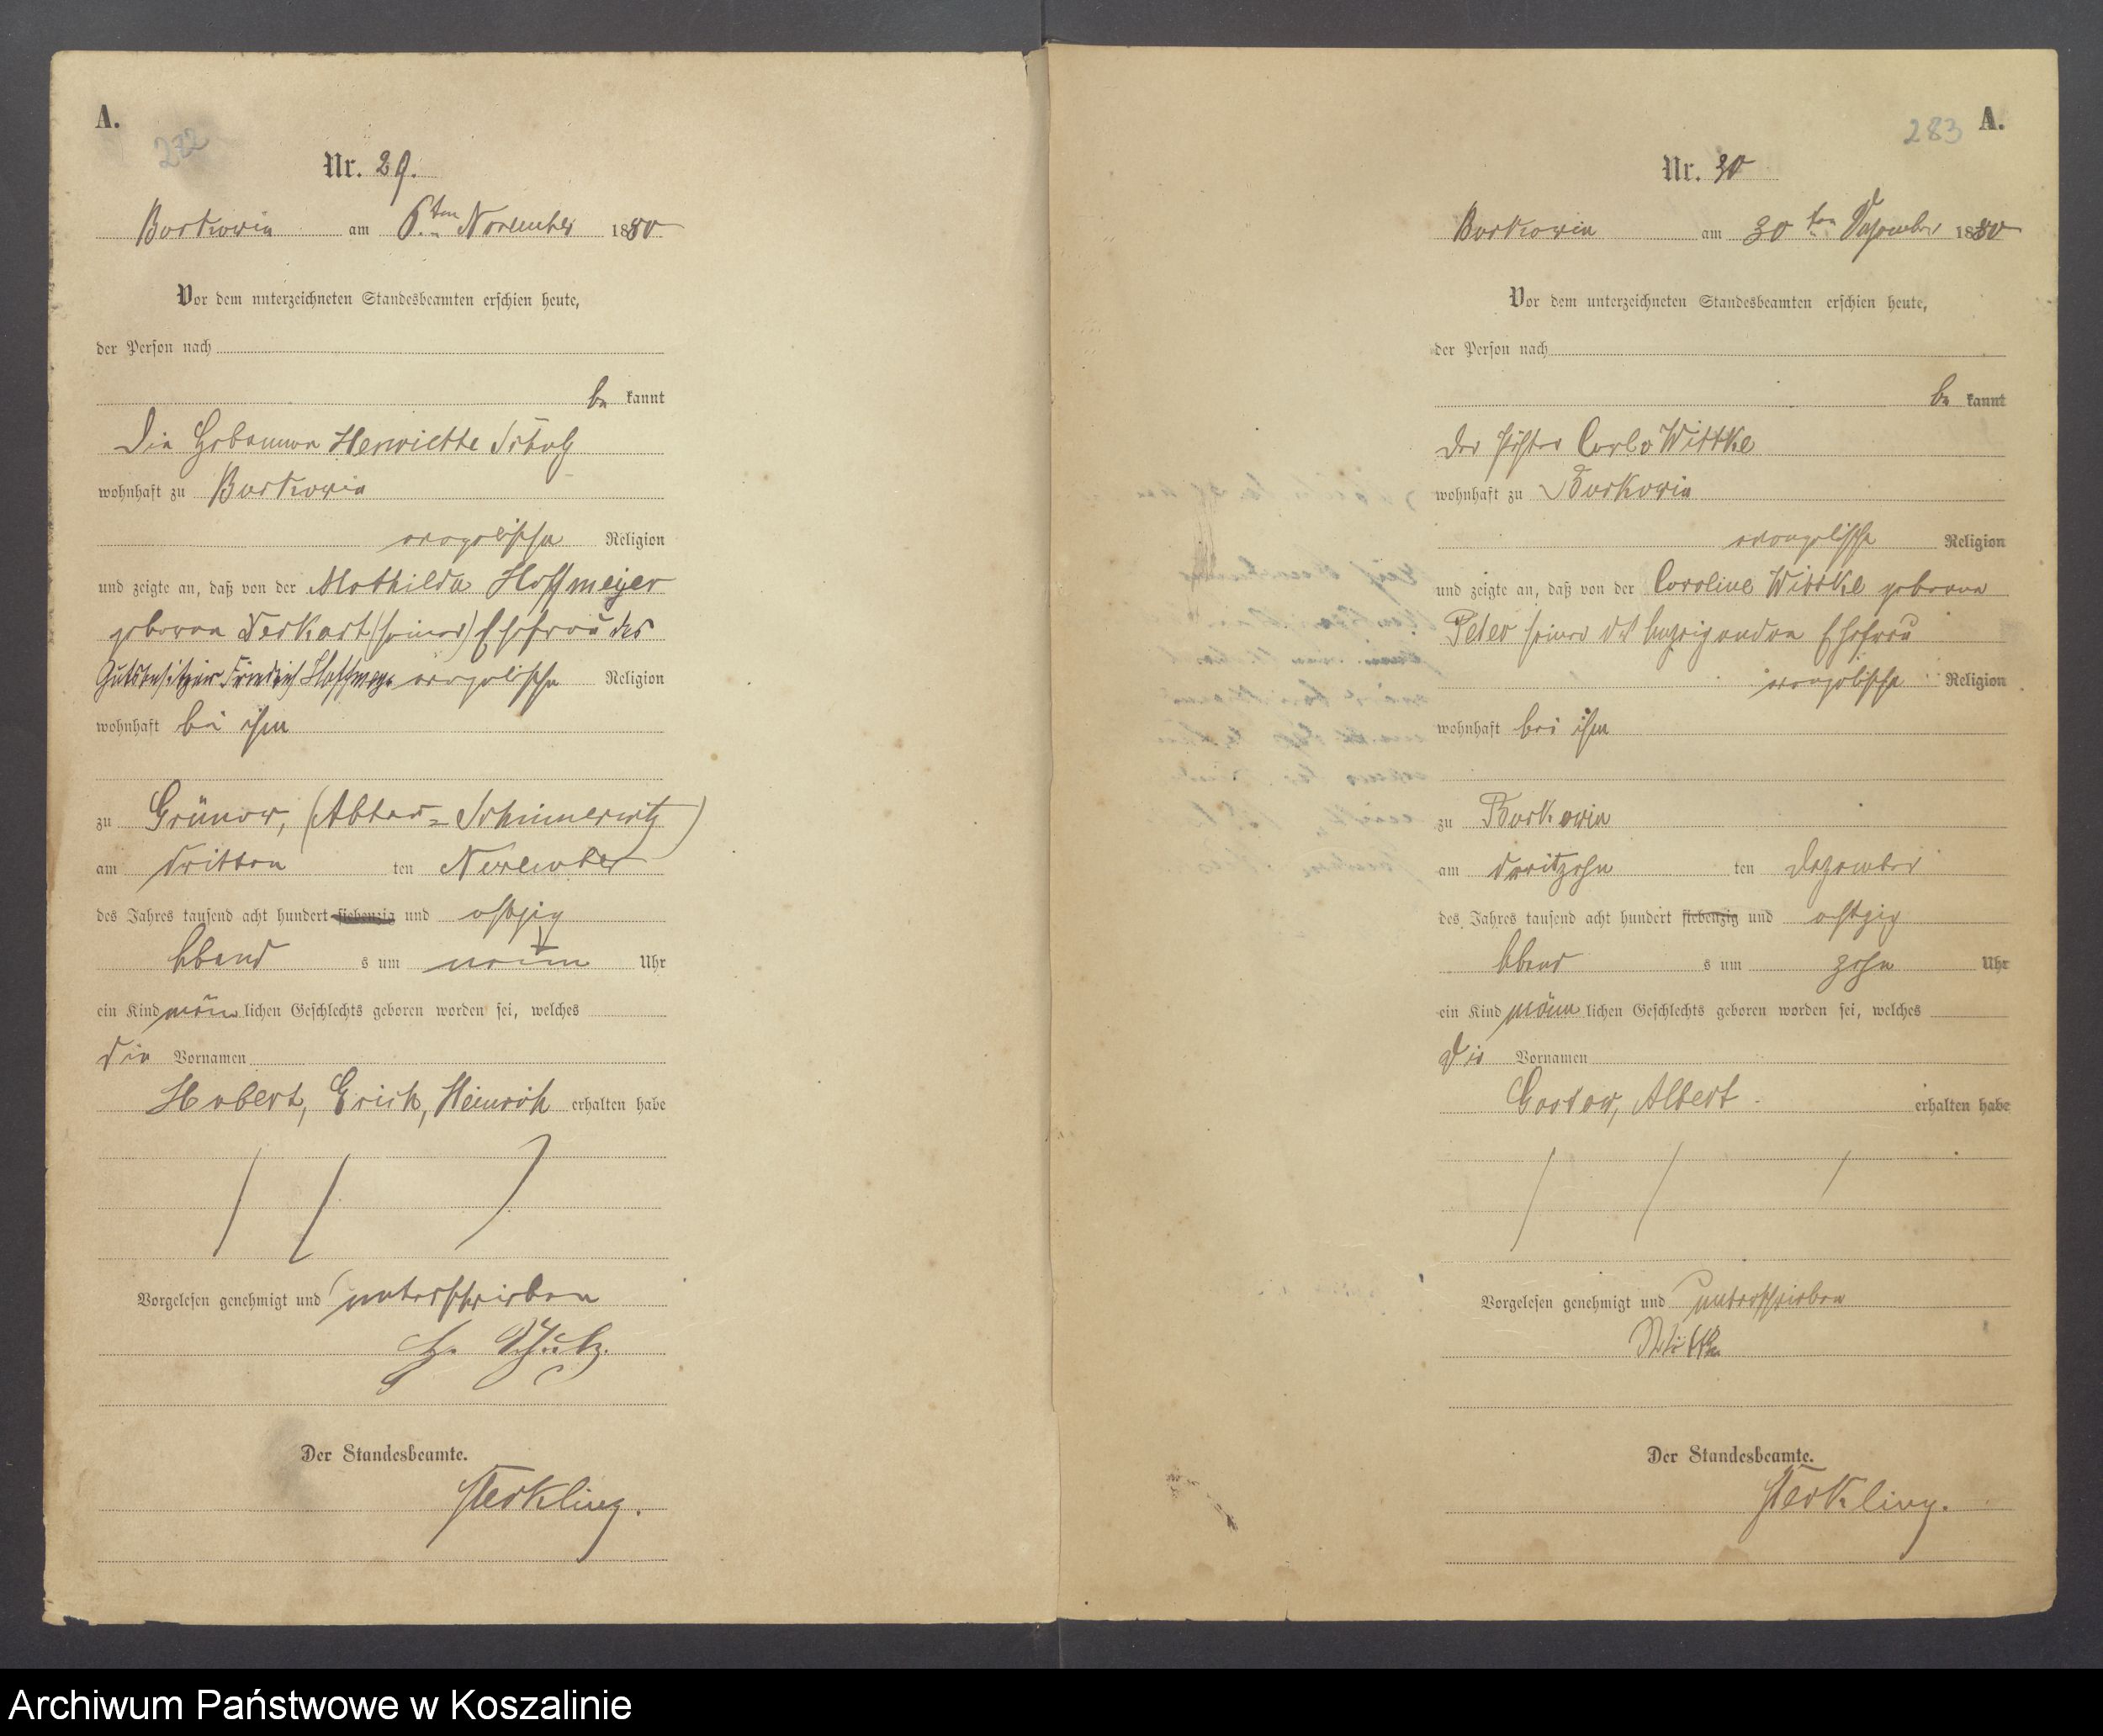 A.
282
Nr. 29.
Borkowin am 6ten November 1880
Vor dem unterzeichneten Standesbeamten erschien heute,
der Person nach
be kannt
Die Hebamme Henriette Schulz
wohnhaft zu Borkowin
evangelischer Religion
und zeigte an, daß von der Mathilde Hoffmeyer
geborene (seiner) Ehefrau des
Gutsbesitzer Friedrich Hoffmeyer evangelischer Religion
wohnhaft bei ihm
zu Grünow, (Abbau-Schimmerwitz)
am dritten ten November
des Jahres tausend acht hundert siebenzig und achtzig
Abend s um neun Uhr
ein Kind männ lichen Geschlechts geboren worden sei, welches
die Vornamen
Hubert, Erich, Heinrich erhalten habe
Vorgelesen genehmigt und unterschrieben
H. Schulz.
Der Standesbeamte.
Sterkling.
283
A.
Nr. 30
Borkowin am 30ten Dezember 1880
Vor dem unterzeichneten Standesbeamten erschien heute,
der Person nach
be kannt
der Carl Wittke
wohnhaft zu Borkowin
evangelischer Religion
und zeigte an, daß von der Caroline Wittke geborene
Peter seiner des Anzeigenden Ehefrau
evangelischer Religion
wohnhaft bei ihm
zu Borkowin
am dreizehn ten Dezember
des Jahres tausend acht hundert siebenzig und achtzig
Abend s um zehn Uhr
ein Kind männ lichen Geschlechts geboren worden sei, welches
die Vornamen
Gustav, Albert erhalten habe
Vorgelesen genehmigt und unterschrieben
Wittke
Der Standesbeamte.
Sterkling.
Archiwum Państwowe w Koszalinie